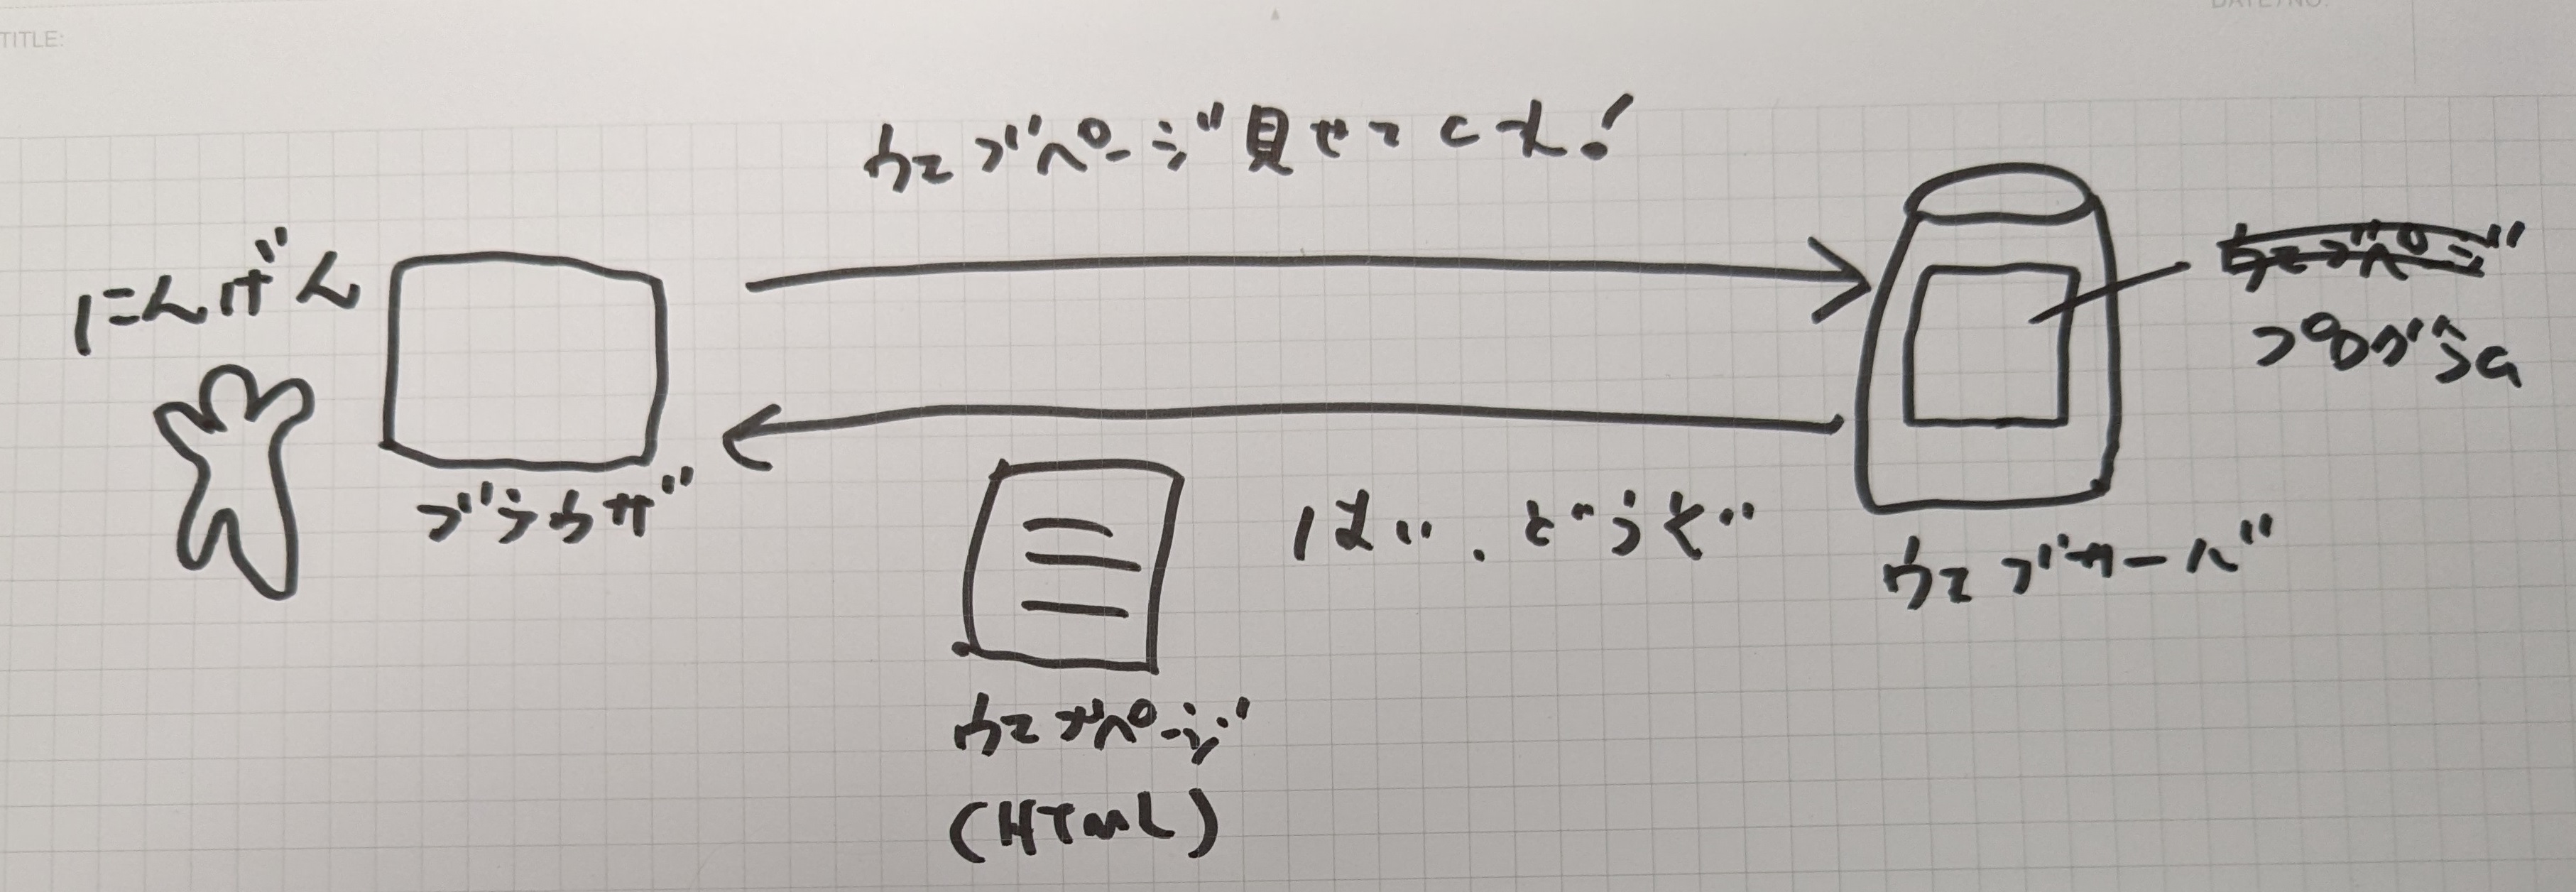 TITLE:
DATE/NO.
ウェブページ見せてくれ!
にんげん
ウェブページ
プログラム
ブラウザ
はい、どうぞ
ウェブサーバ
ウェブページ
(HTML)